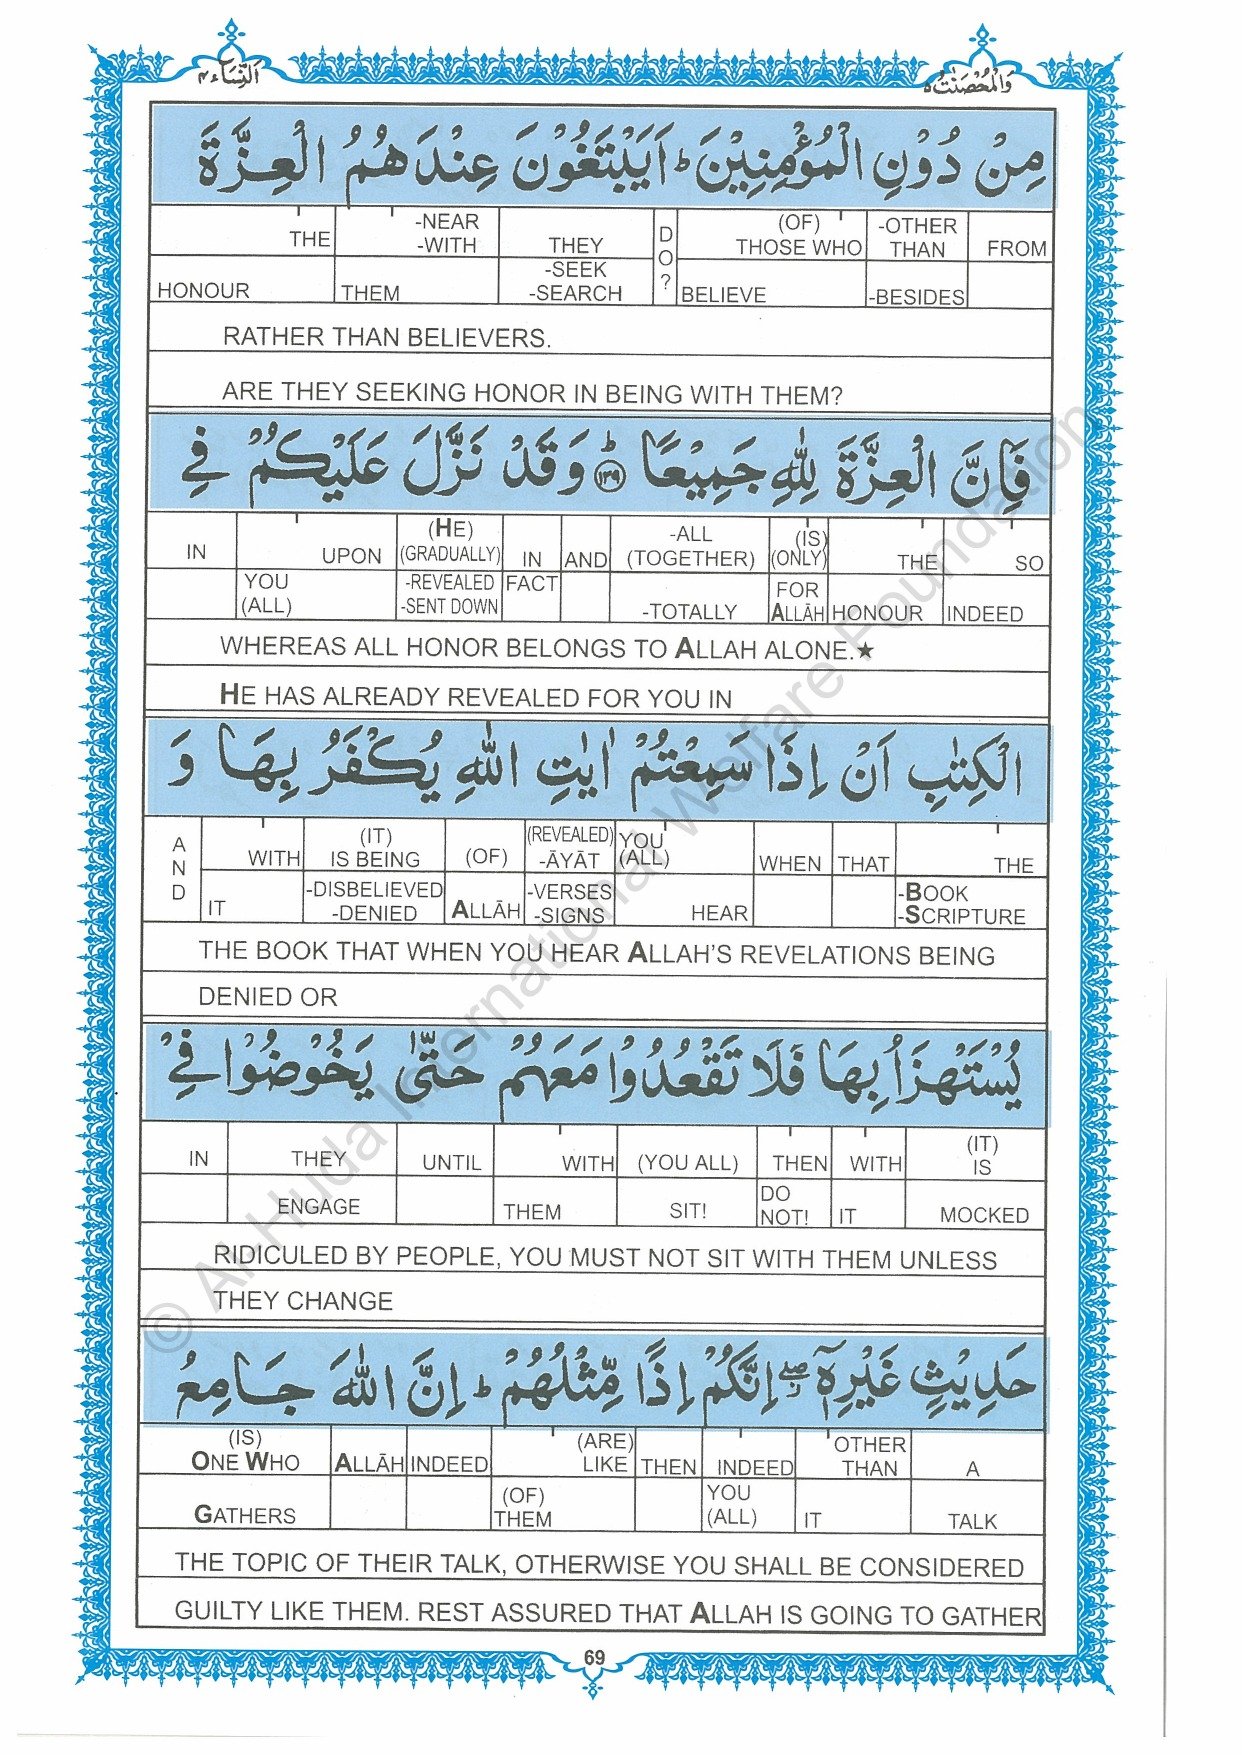 اَلنِّسَآء ٤
وَالْمُحْصَنٰتُ ٥
مِنْ دُوْنِ الْمُؤْمِنِيْنَ ؕ اَيَبْتَغُوْنَ عِنْدَهُمُ الْعِزَّةَ
THE -NEAR THEY D (OF) -OTHER FROM
-WITH O THOSE WHO THAN
HONOUR THEM -SEEK ? BELIEVE -BESIDES
-SEARCH
RATHER THAN BELIEVERS.
ARE THEY SEEKING HONOR IN BEING WITH THEM?
فَاِنَّ الْعِزَّةَ لِلّٰهِ جَمِيْعًا ؕ ﴿١٣٩﴾ وَ قَدْ نَزَّلَ عَلَيْكُمْ فِي
IN UPON (HE) IN AND -ALL (IS) THE SO
(GRADUALLY) (TOGETHER) (ONLY)
YOU -REVEALED FACT -TOTALLY FOR HONOUR INDEED
(ALL) -SENT DOWN ALLĀH
WHEREAS ALL HONOR BELONGS TO ALLAH ALONE.★
HE HAS ALREADY REVEALED FOR YOU IN
الْكِتٰبِ اَنْ اِذَا سَمِعْتُمْ اٰيٰتِ اللّٰهِ يُكْفَرُ بِهَا وَ
A WITH (IT) (OF) (REVEALED) YOU WHEN THAT THE
N IS BEING -ĀYĀT (ALL)
D IT -DISBELIEVED ALLĀH -VERSES HEAR -BOOK
-DENIED -SIGNS -SCRIPTURE
THE BOOK THAT WHEN YOU HEAR ALLAH'S REVELATIONS BEING
DENIED OR
يُسْتَهْزَاُ بِهَا فَلَا تَقْعُدُوْا مَعَهُمْ حَتّٰى يَخُوْضُوْا فِيْ
IN THEY UNTIL WITH (YOU ALL) THEN WITH (IT)
IS
ENGAGE THEM SIT! DO IT MOCKED
NOT!
RIDICULED BY PEOPLE, YOU MUST NOT SIT WITH THEM UNLESS
THEY CHANGE
حَدِيْثٍ غَيْرِهٖٓ ۖ اِنَّكُمْ اِذًا مِّثْلُهُمْ ؕ اِنَّ اللّٰهَ جَامِعُ
(IS) ALLĀH INDEED (ARE) THEN INDEED OTHER A
ONE WHO LIKE THAN
GATHERS (OF) YOU IT TALK
THEM (ALL)
THE TOPIC OF THEIR TALK, OTHERWISE YOU SHALL BE CONSIDERED
GUILTY LIKE THEM. REST ASSURED THAT ALLAH IS GOING TO GATHER
69
© Al-Huda International Welfare Foundation